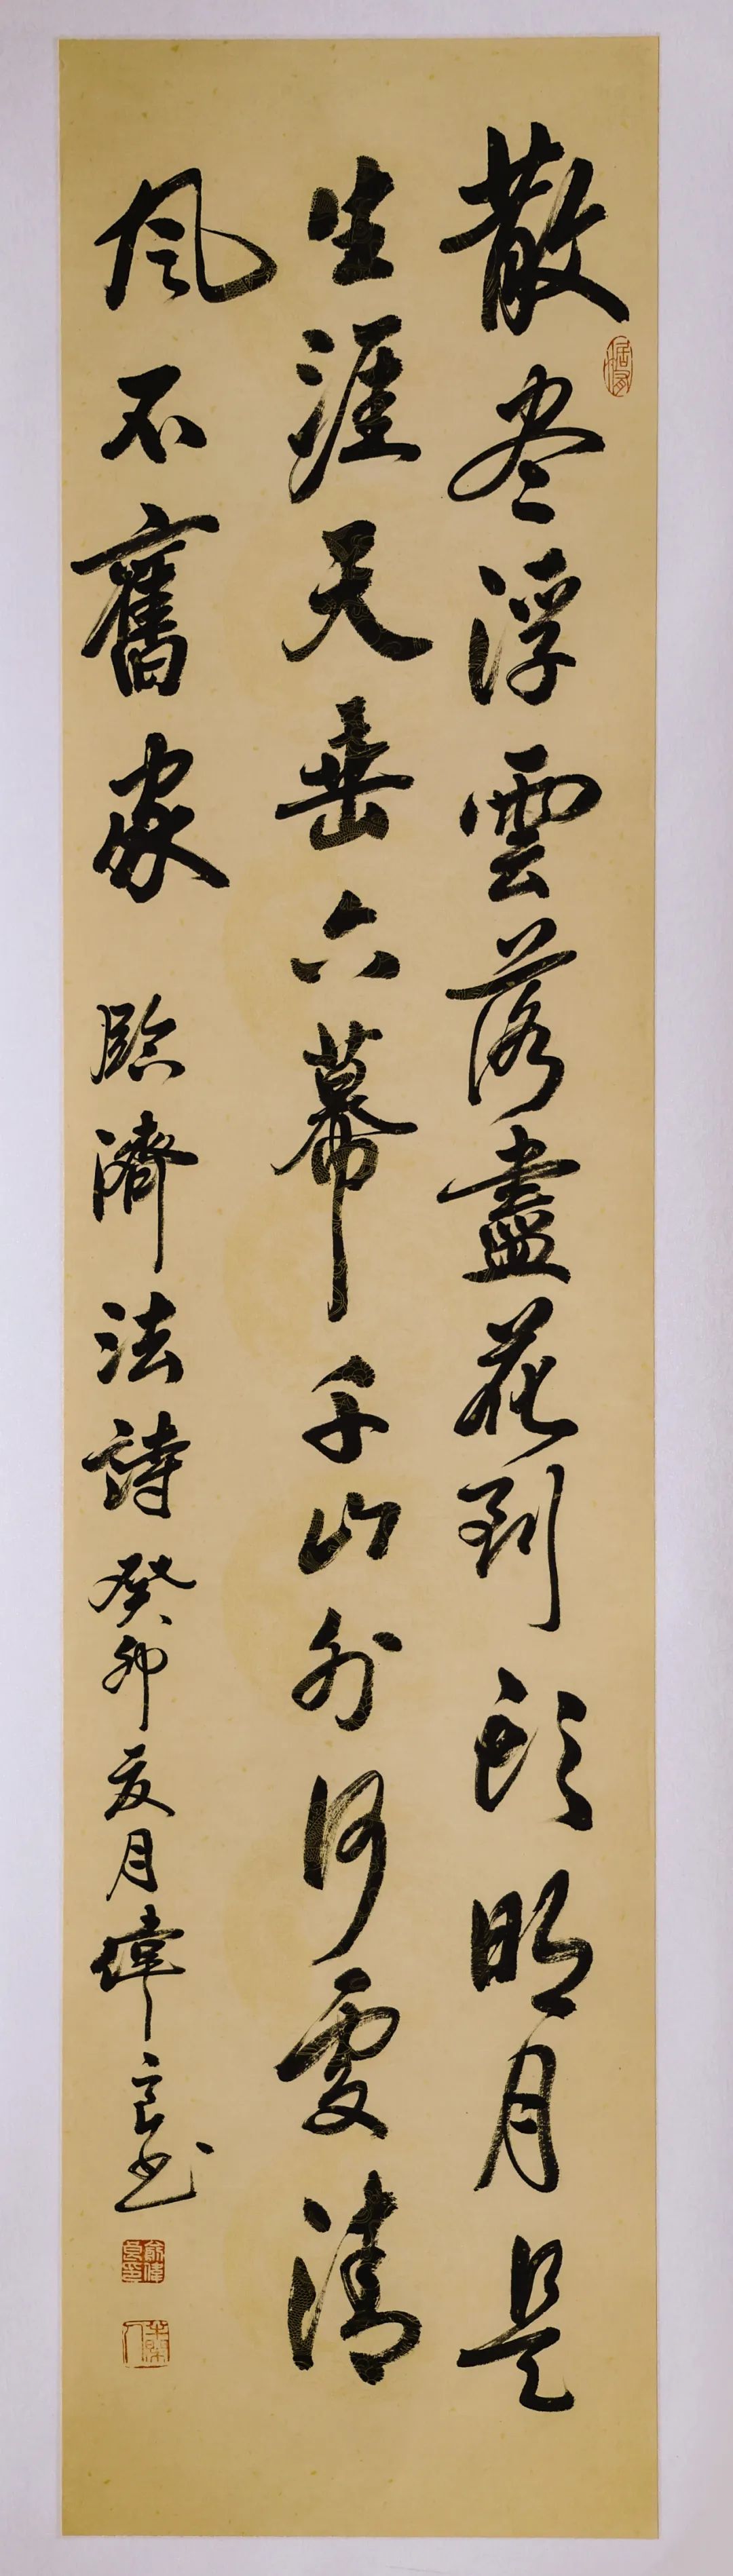 散尽浮雲落盡花到頭明月是
生涯天垂六幕千山外何處清
風不舊家 臨濟法詩 癸卯夏月偉良書